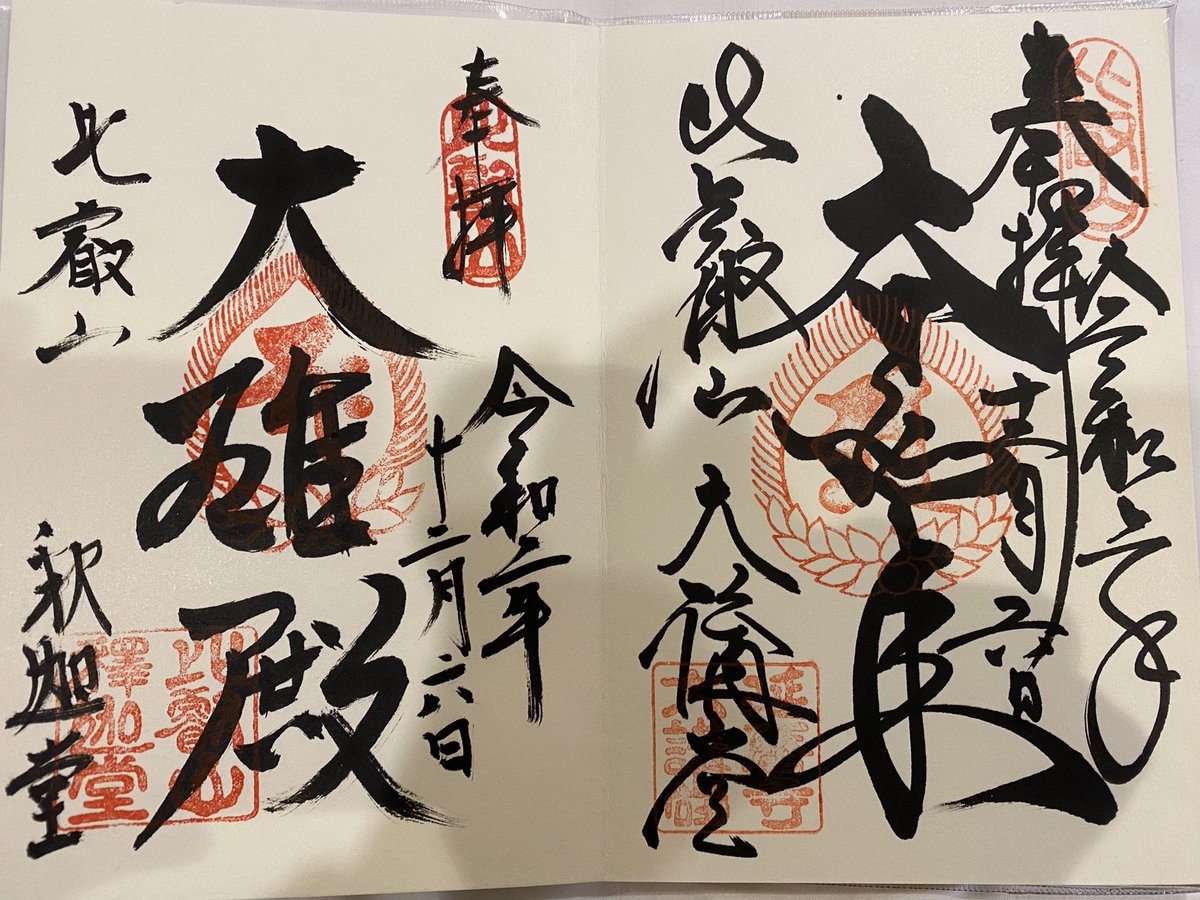 奉拝
令和二年
十二月六日
大日如来
比叡山
大講堂
奉拝
令和二年
十二月六日
大雄殿
比叡山
釈迦堂
比叡山
釋迦堂